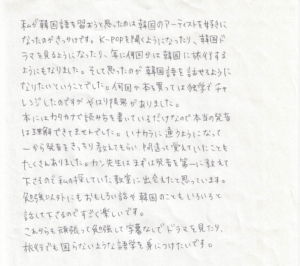 私が韓国語を習おうと思ったのは韓国のアーティストを好きに
なったのがきっかけです。K-POPを聞くようになったり、韓国ド
ラマを見るようになったり、年に何回かは韓国に旅行する
ようにもなりました。そして思ったのが韓国語を話せるように
なりたいということでした。何回か本を買っては独学でチャ
レンジしたのですがやはり限界がありました。
本にはカタカナで読み方を書いているだけなので本当の発音
は理解できませんでした。いナカうに通うようになって
一から発音をきっちり教えてもらい間違って覚えていたことも
たくさんありました。カン先生はまずは発音を第一に教えて
下さるので私の探していた教室に出会えたと思っています。
勉強以外にもおもしろい話や韓国のこともいろいろと
話して下さるのですごく楽しいです。
これからも頑張って勉強して字幕なしでドラマを見たり、
旅行でも困らないような語学を身につけたいです。